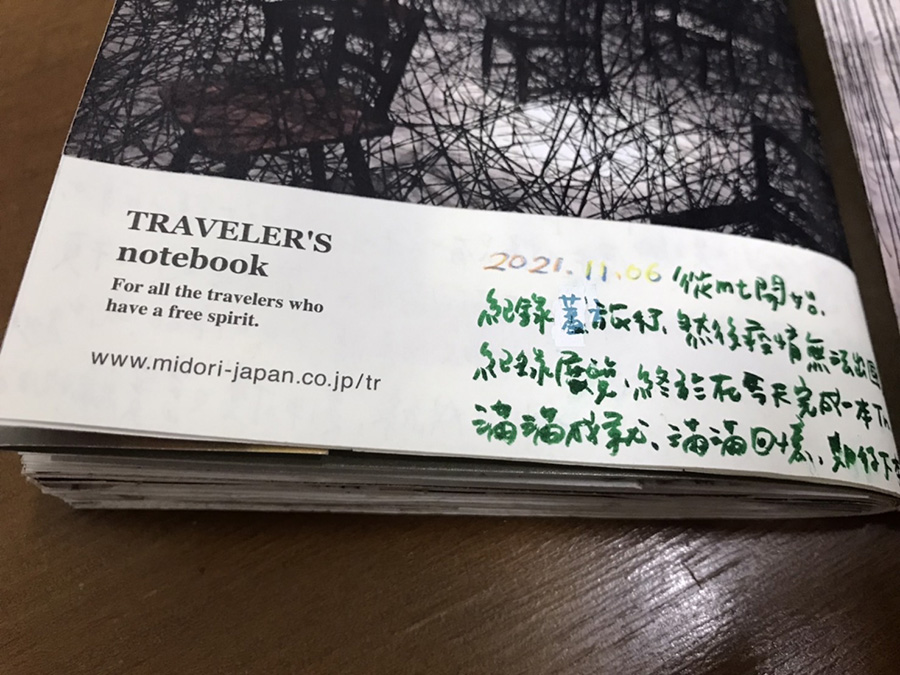 TRAVELER'S
notebook
For all the travelers who
have a free spirit.
www.midori-japan.co.jp/tr
2021.11.06 從mt開始.
紀錄著旅行、然後疫情無法出國
紀錄展覽、終於在今天完成一本
滿滿成就、滿滿回憶、期待下